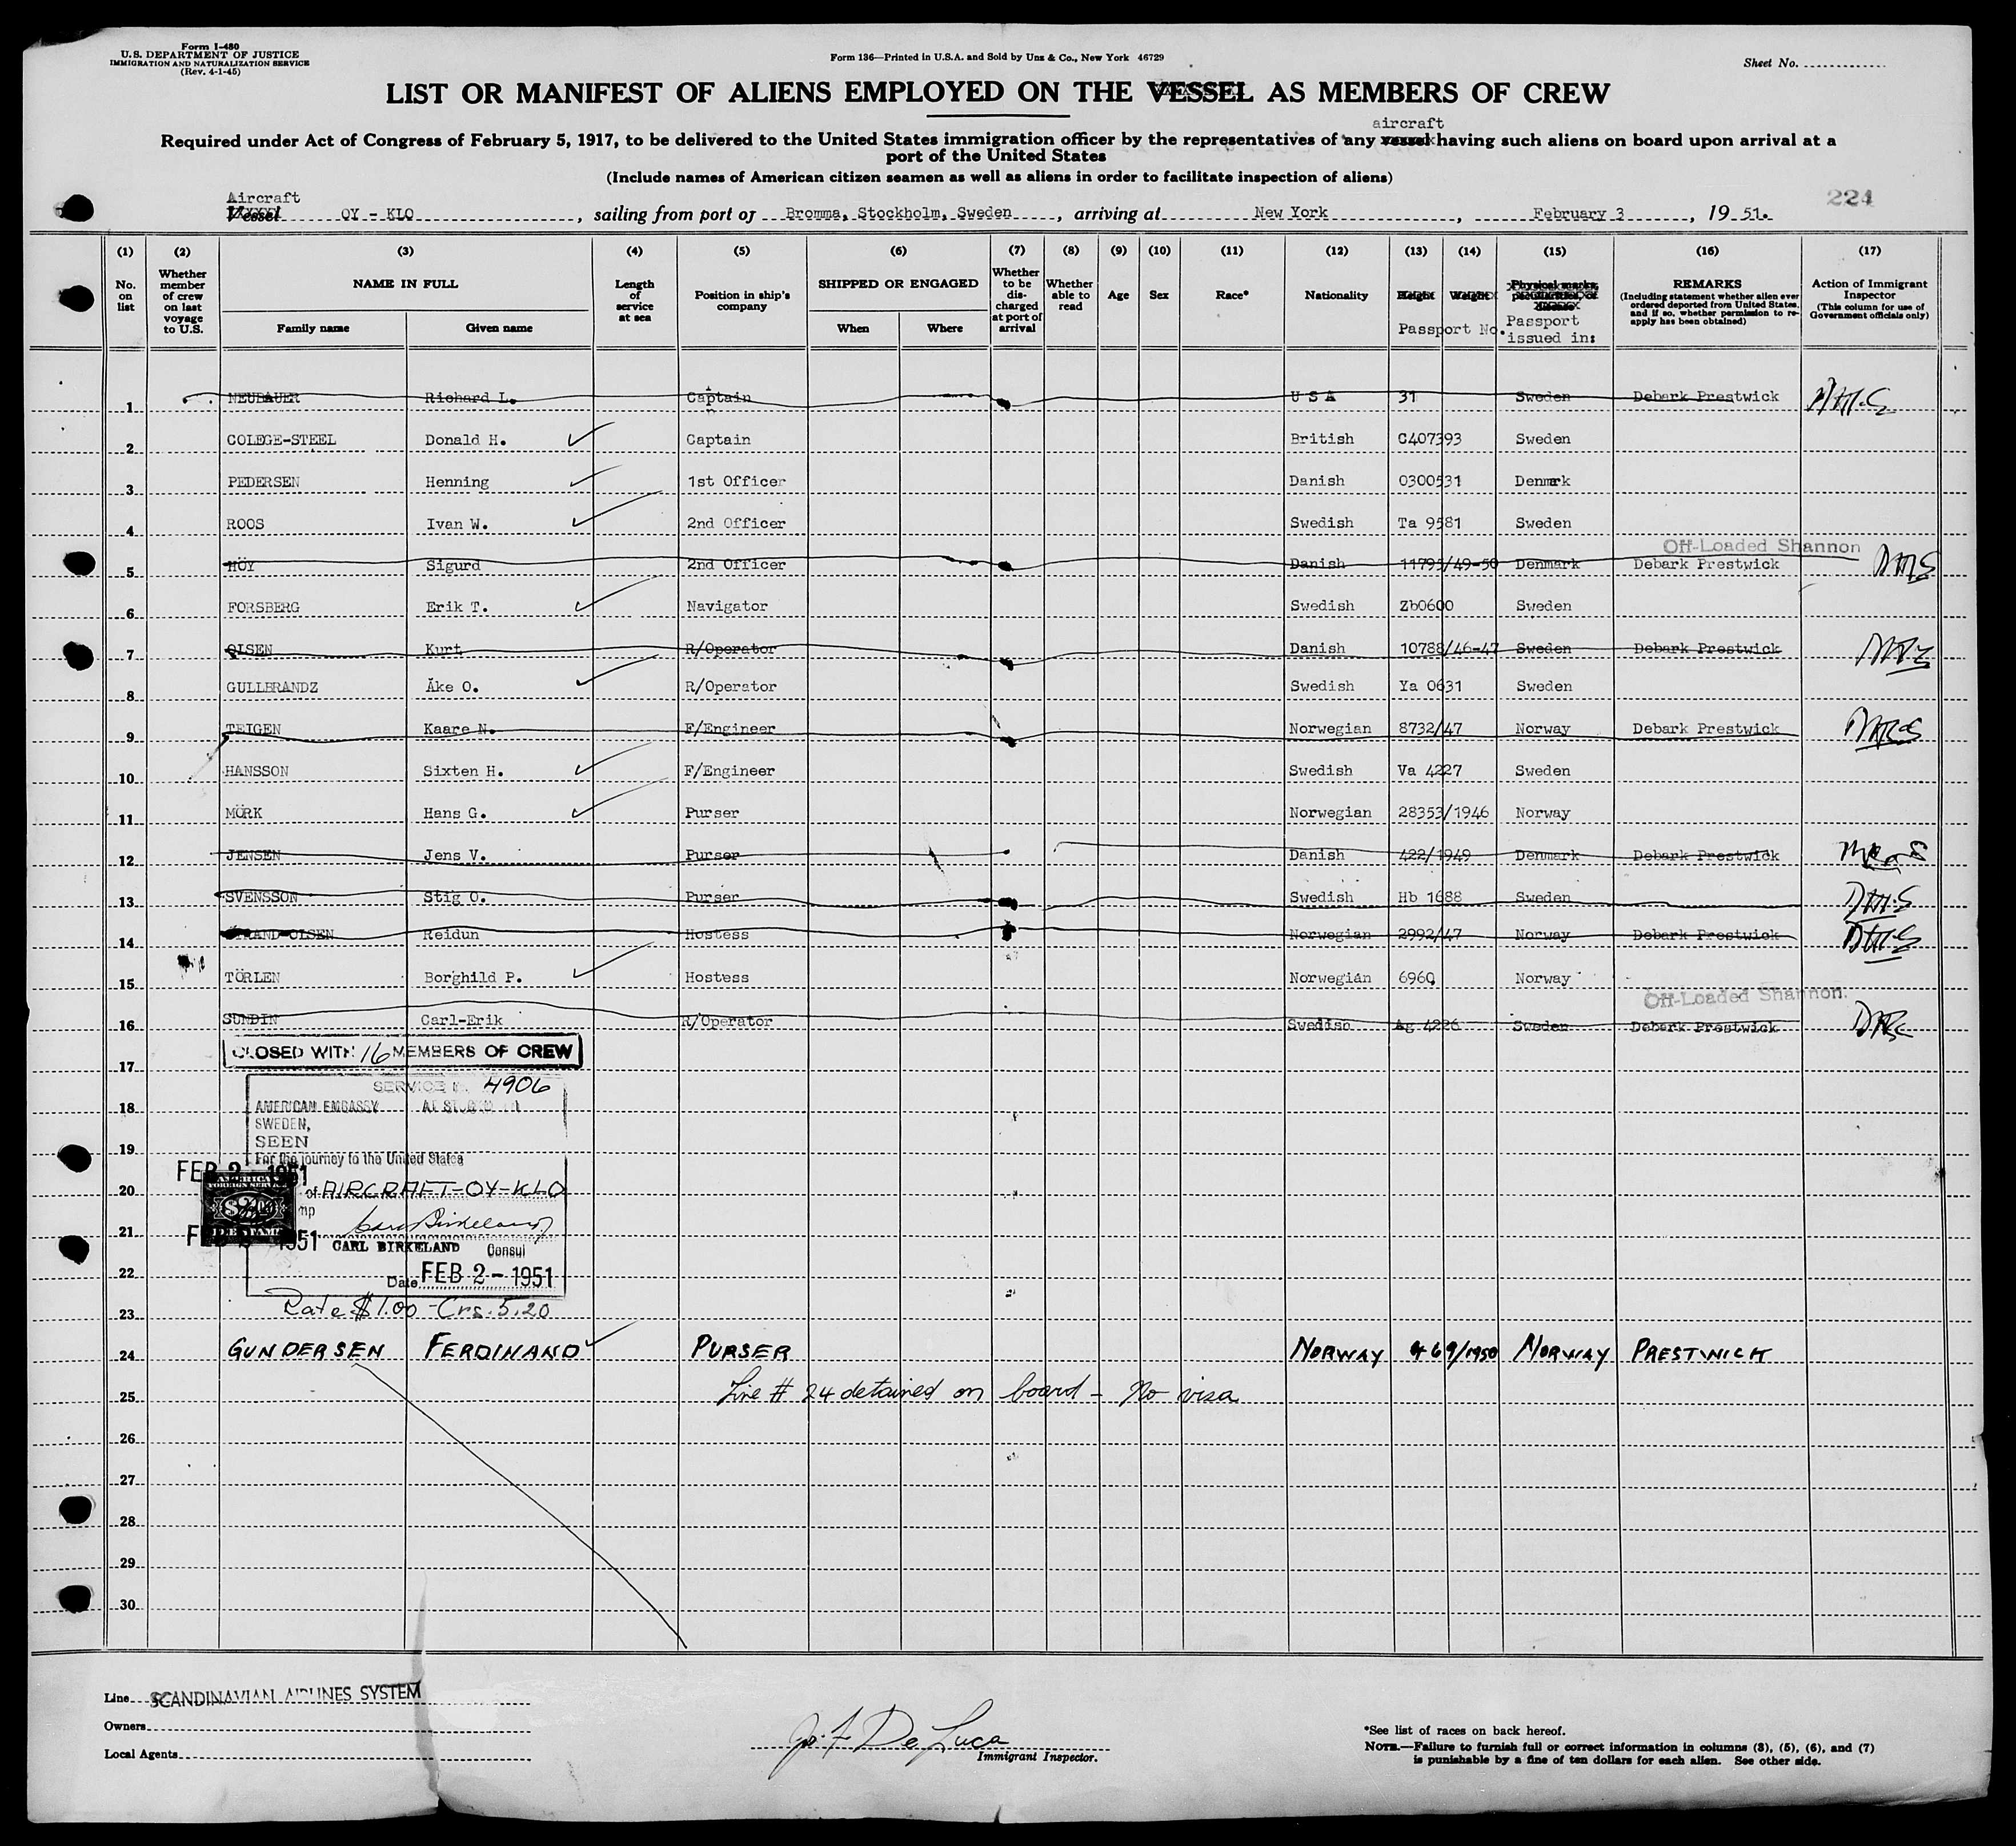 Form I-480
U.S. DEPARTMENT OF JUSTICE
IMMIGRATION AND NATURALIZATION SERVICE
(Rev. 4-1-45)
Form 136—Printed in U.S.A. and Sold by Unz & Co., New York 46729
Sheet No.
LIST OR MANIFEST OF ALIENS EMPLOYED ON THE VESSEL AS MEMBERS OF CREW
aircraft
Required under Act of Congress of February 5, 1917, to be delivered to the United States immigration officer by the representatives of any vessel having such aliens on board upon arrival at a
port of the United States
(Include names of American citizen seamen as well as aliens in order to facilitate inspection of aliens)
224
Aircraft
Vessel OY - KLO, sailing from port of Bromma, Stockholm, Sweden, arriving at New York, February 3, 19 51.
(1) (2) (3) (4) (5) (6) (7) (8) (9) (10) (11) (12) (13) (14) (15) (16) (17)
No. on list
Whether member of crew on last voyage to U.S.
NAME IN FULL
Family name Given name
Length of service at sea
Position in ship's company
SHIPPED OR ENGAGED
When Where
Whether to be discharged at port of arrival
Whether able to read
Age
Sex
Race*
Nationality
Height Weight
Passport No.
Physical marks, peculiarities, or disease
Passport issued in:
REMARKS
(Including statement whether alien ever ordered deported from United States, and if so, whether permission to re-apply has been obtained)
Action of Immigrant Inspector
(This column for use of Government officials only)
1 NEUBAUER Richard L. Captain U S A 31 Sweden Debark Prestwick
2 COLEGE-STEEL Donald H. Captain British C407393 Sweden
3 PEDERSEN Henning 1st Officer Danish 0300531 Denmark
4 ROOS Ivan W. 2nd Officer Swedish Ta 9581 Sweden
Off-Loaded Shannon
5 HÖY Sigurd 2nd Officer Danish 11795/49-50 Denmark Debark Prestwick
6 FORSBERG Erik T. Navigator Swedish Zb0600 Sweden
7 OLSEN Kurt R/Operator Danish 10788/46-47 Sweden Debark Prestwick
8 GULLBRANDZ Åke O. R/Operator Swedish Ya 0631 Sweden
9 TEIGEN Kaare N. F/Engineer Norwegian 8732/47 Norway Debark Prestwick
10 HANSSON Sixten H. F/Engineer Swedish Va 4227 Sweden
11 MÖRK Hans G. Purser Norwegian 28353/1946 Norway
12 JENSEN Jens V. Purser Danish 422/1949 Denmark Debark Prestwick
13 SVENSSON Stig O. Purser Swedish Hb 1688 Sweden
14 STRAND-OLSEN Reidun Hostess Norwegian 2992/47 Norway Debark Prestwick
15 TÖRLEN Borghild P. Hostess Norwegian 6960 Norway
Off-Loaded Shannon.
16 SUNDIN Carl-Erik R/Operator Swedish Ag 4226 Sweden Debark Prestwick
CLOSED WITH 16 MEMBERS OF CREW
17
SERVICE 4906
18 AMERICAN EMBASSY AT
SWEDEN,
SEEN
19 For the journey to the United States
FEB 2 - 1951
20 of AIRCRAFT-OY-KLO
AMERICAN FOREIGN SERVICE
FEE STAMP
Carl Birkeland
21 1951 CARL BIRKELAND Consul
22 Date FEB 2 - 1951
23 Rate $1.00 - Crs. 5.20
24 GUNDERSEN FERDINAND PURSER NORWAY 469/1950 NORWAY PRESTWICK
Line # 24 detained on board - No visa
25
26
27
28
29
30
Line SCANDINAVIAN AIRLINES SYSTEM
Owners
Local Agents
Jos. F. De Luca
Immigrant Inspector.
*See list of races on back hereof.
NOTE.—Failure to furnish full or correct information in columns (3), (5), (6), and (7)
is punishable by a fine of ten dollars for each alien. See other side.